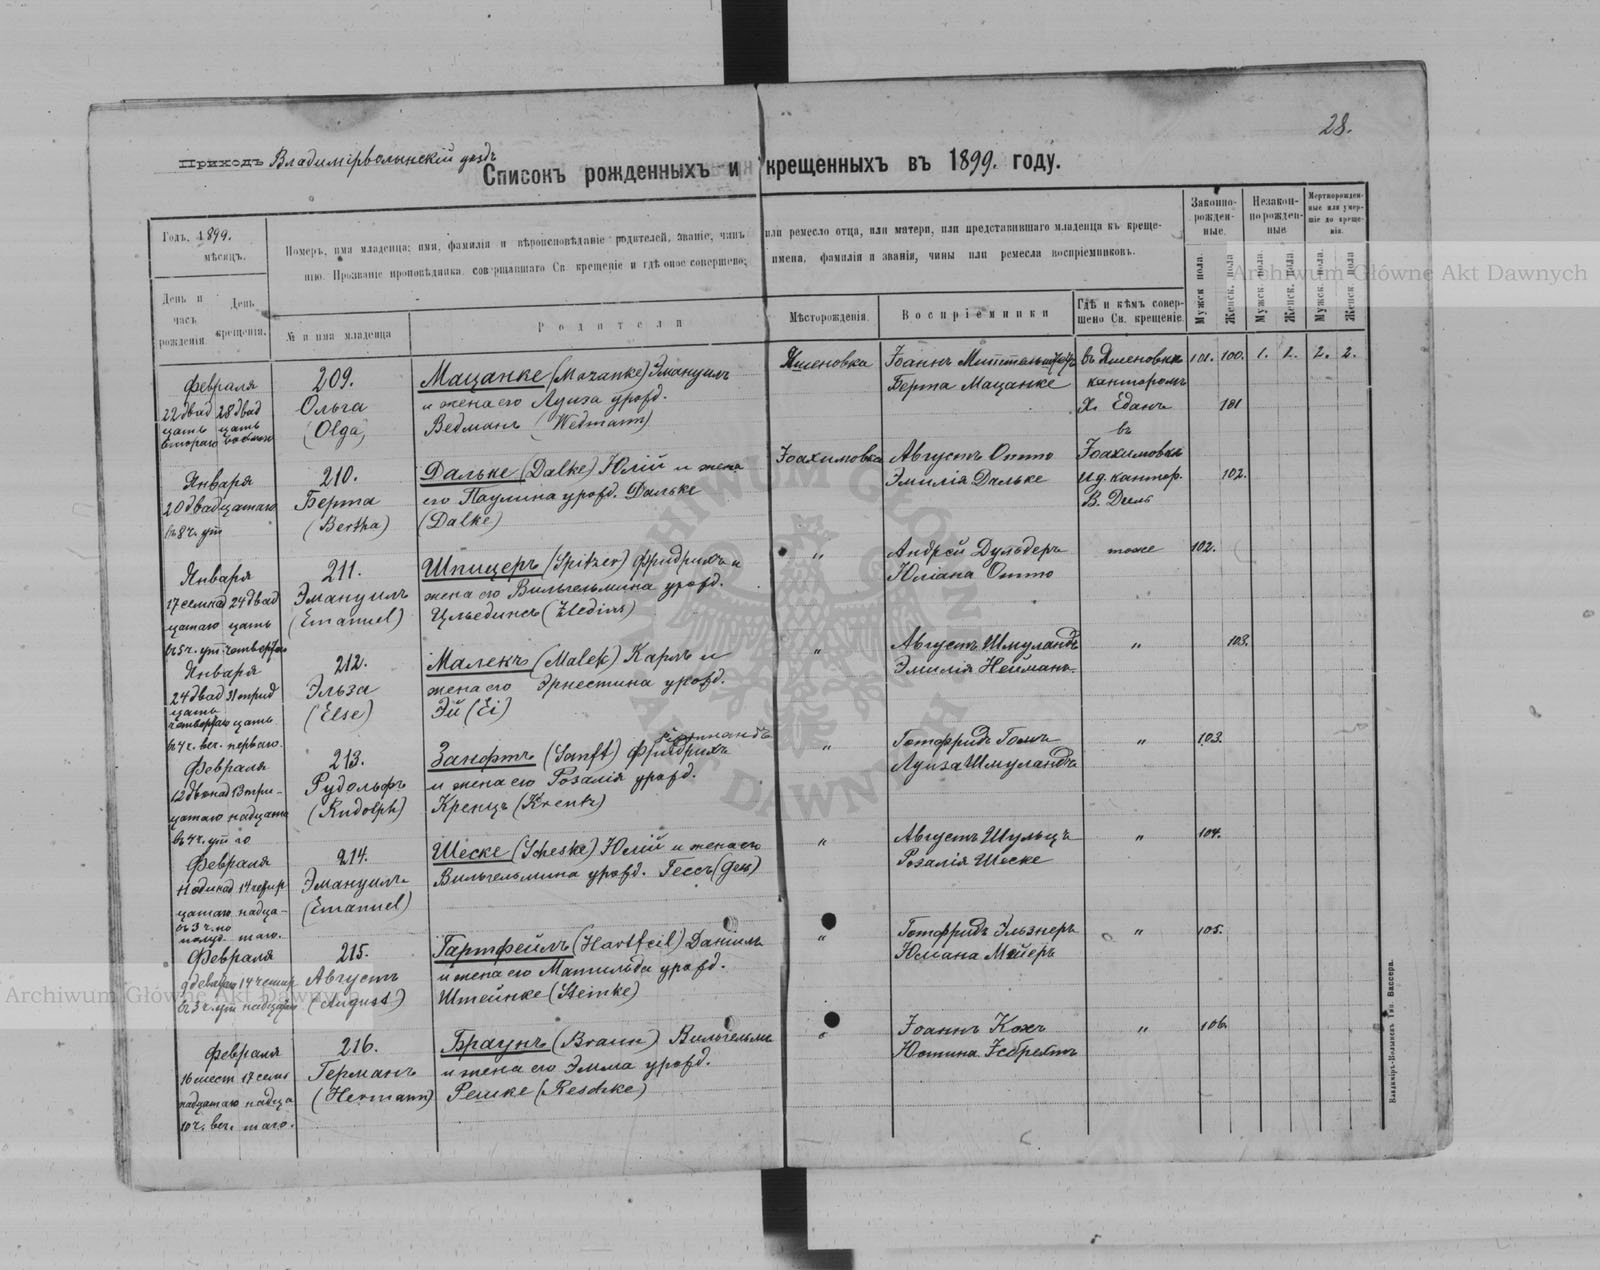 28.
Приходъ Владимірволынскій уѣздъ
Списокъ рожденныхъ и крещенныхъ въ 1899. году.
Годъ, 1899.
мѣсяцъ.
День и часъ рожденія.
День крещенія.
Номеръ, имя младенца; имя, фамилія и вѣроисповѣданіе родителей, званіе, чинъ или ремесло отца, или матери, или представившаго младенца къ креще-
нію. Прозваніе проповѣдника, совершавшаго Св. крещеніе и гдѣ оное совершено; имена, фамилія и званія, чины или ремесла воспріемниковъ.
№ и имя младенца
Родители
Мѣсторожденія.
Воспріемники
Гдѣ и кѣмъ совер-
шено Св. крещеніе.
Законно-
рожден-
ные.
Незакон-
норожден-
ные
Мертворожден-
ные или умер-
шіе до креще-
нія.
Мужск. пола.
Женск. пола
Мужск. пола.
Женск. пола
Мужск. пола.
Женск. пола
Февраля
22 двад 28 двад
цать цать
втораго восьмого
209.
Ольга
(Olga)
Мацанке (Mozanke) Эмануилъ
и жена его Луиза урожд.
Ведманъ (Wedmann)
Яненовка
Іоаннъ
Берта Мацанке
въ Яненовкѣ
канторомъ
Х. Еданъ
101. 100. 1. 1. 2. 2.
101
Января
20 двадцатаго
въ 8 ч. ут
210.
Берта
(Bertha)
Дальке (Dalke) Юлій и жена
его Паулина урожд. Дальке
(Dalke)
Іоахимовка
Августъ Отто
Эмилія Дальке
въ
Іоахимовкѣ
и. д. кантор.
В. Диль
102.
Января
17 семнад 24 двад
цатаго цать
въ 5 ч. ут. четвертаго
211.
Эмануилъ
(Emanuel)
Шпицеръ (Spitzer) Фридрихъ и
жена его Вильгельмина урожд.
Цльединсъ (Zledins)
"
Андрей Дульдеръ
Юліана Отто
тоже
102.
Января
24 двад 31 трид
цать
четвертаго цать
въ 4 ч. веч. перваго.
212.
Эльза
(Else)
Малекъ (Malek) Карлъ и
жена его Эрнестина урожд.
Эй (Ei)
"
Августъ Шмуландъ
Эмилія Нейманъ
"
103.
Февраля
12 двѣнад 13 три-
цатаго надцата
въ 4 ч. ут го
213.
Рудольфъ
(Rudolph)
Занфтъ (Sanft) Фридрихъ
и жена его Розалія урожд.
Кренцъ (Krentz)
"
Готфридъ Гольъ
Луиза Шмуландъ
"
103.
Февраля
11 одинад 14 четыр
цатаго надца-
въ 3 ч. по
полуд. таго.
214.
Эмануилъ
(Emanuel)
Шеске (Scheske) Юлій и жена его
Вильгельмина урожд. Гессъ
"
Августъ Шульцъ
Розалія Шеске
"
104.
Февраля
9 девятаго 14 четыр
въ 3 ч. ут надцатаго
215.
Августъ
(August)
Гартфейль (Hartfeil) Даніилъ
и жена его Матильда урожд.
Штейнке (Steinke)
"
Готфридъ Эльзнеръ
Юліана Мейеръ
"
105.
Февраля
16 шест 17 семь
надцатаго надца
10 ч. веч. таго.
216.
Германъ
(Hermann)
Браунъ (Braun) Вильгельмъ
и жена его Эмма урожд.
Решке (Reschke)
"
Іоаннъ Кохъ
Юстина
"
106.
Владиміръ-Волынскъ Тип. Вассера.
Archiwum Główne Akt Dawnych
Archiwum Główne Akt Dawnych
ARCHIWUM GŁÓWNE AKT DAWNYCH